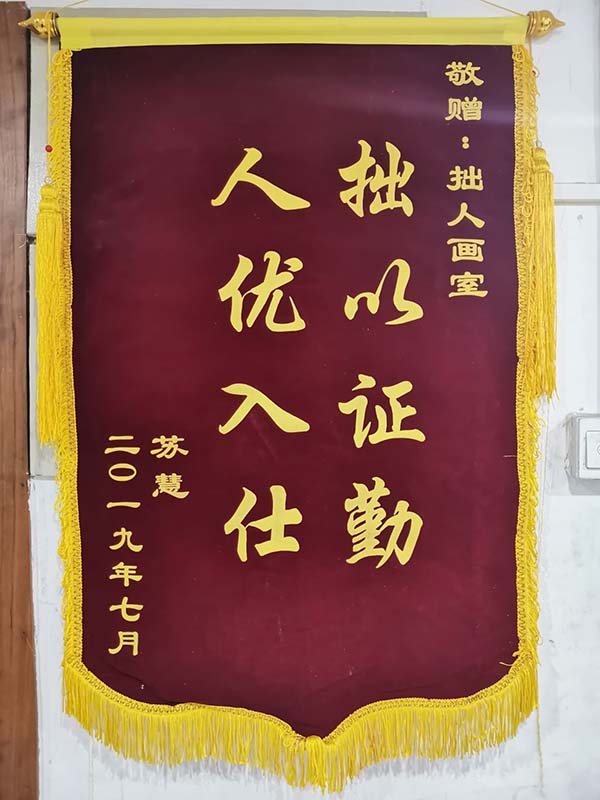 敬赠：拙人画室
拙以证勤
人优入仕
苏慧
二〇一九年七月